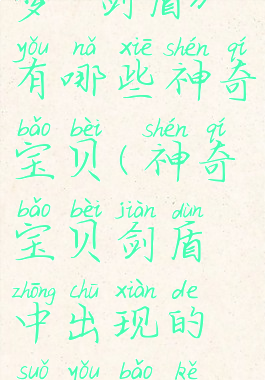 剑盾》
yǒu nǎ xiē shén qí
有哪些神奇
bǎo bèi shén qí
宝贝(神奇
bǎo bèi jiàn dùn
宝贝剑盾
zhōng chū xiàn de
中出现的
suǒ yǒu bǎo kě